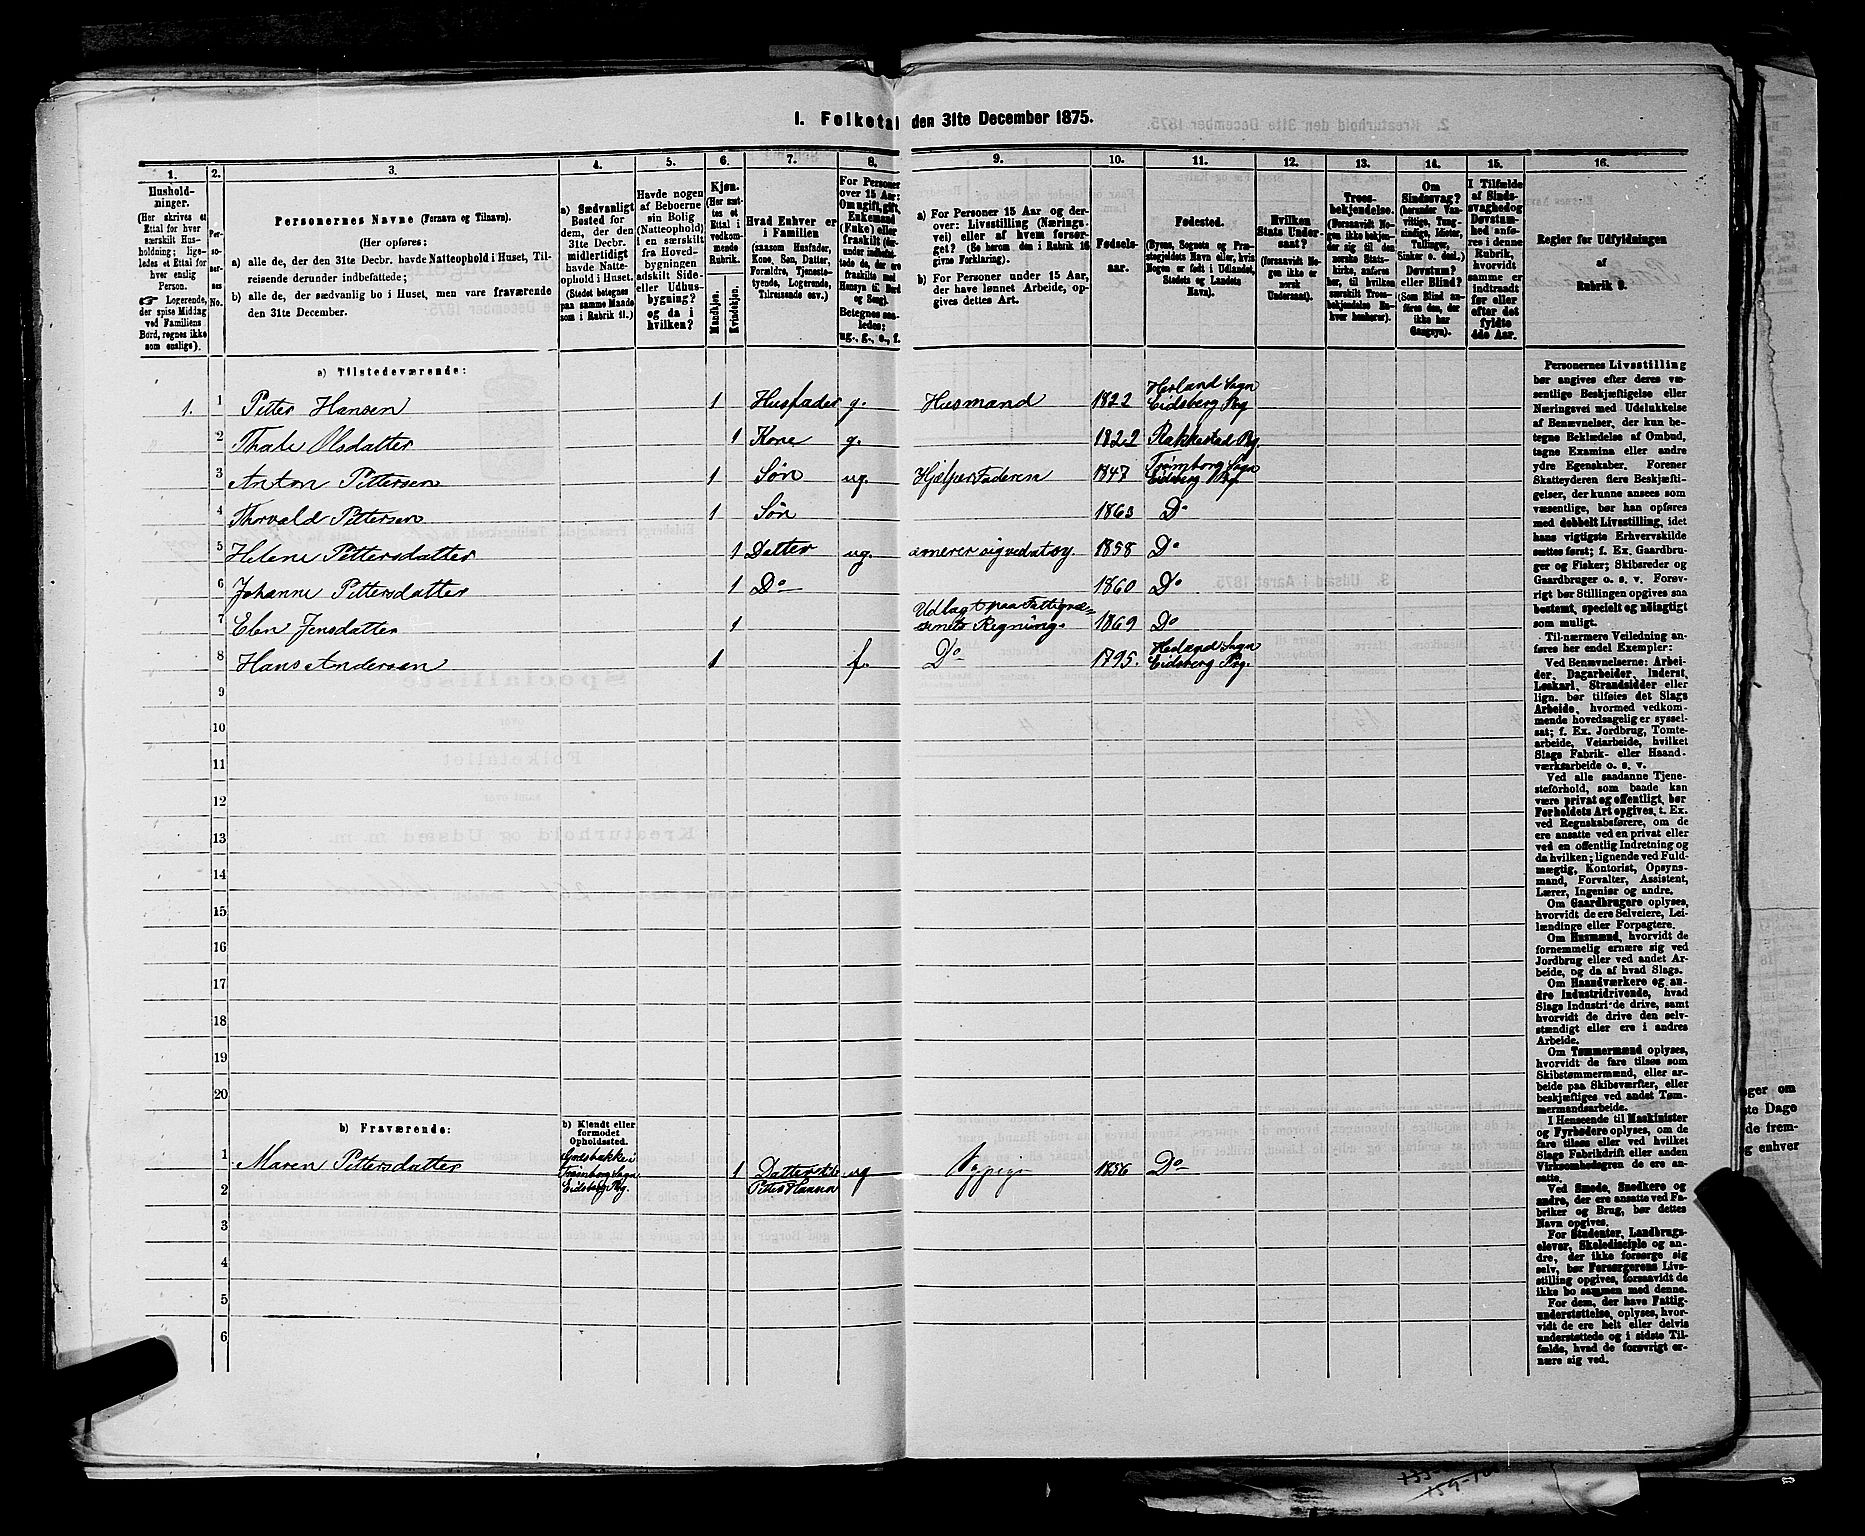 1. Folketal den 31te December 1875.
1.
2.
3.
4.
5.
6.
7.
8.
9.
10.
11.
12.
13.
14.
15.
16.
Hushold-
ninger.
(Her skrives et
Ettal for hver
særskilt Hus-
holdning; lige-
ledes et Ettal for
hver enslig
Person.
Logerende,
der spise Middag
ved Familiens
Bord, regnes ikke
som enslige).
Per-
so-
ner-
nes
No.
Personernes Navne (Fornavn og Tilnavn).
(Her opføres:
a) alle de, der den 31te Decbr. havde Natteophold i Huset, Til-
reisende derunder indbefattede;
b) alle de, der sædvanlig bo i Huset, men vare fraværende
den 31te December.
a) Sædvanligt
Bosted for
dem, der den
31te Decbr.
midlertidigt
havde Natte-
ophold i Huset.
(Stedet betegnes
paa samme Maade
som i Rubrik 11.)
Havde nogen
af Beboerne
sin Bolig
(Natteophold)
i en særskilt
fra Hoved-
bygningen
adskilt Side-
eller Udhus-
bygning?
og da i
hvilken?
Kjøn.
(Her sæt-
tes et
Ettal i
vedkom-
mende
Rubrik.
Mandkjøn.
Kvindekjøn.
Hvad Enhver er
i Familien
(saasom Husfader,
Kone, Søn, Datter,
Forældre, Tjeneste-
tyende, Logerende,
Tilreisende osv.)
For Personer
over 15 Aar:
Om ugift, gift,
Enkemand
(Enke) eller
fraskilt (der-
under indbefat-
tede de, der ere
fraskilte med
Hensyn til Bord
og Seng).
Betegnes saa-
ledes:
ug., g., e., f.
a) For Personer 15 Aar og der-
over: Livsstilling (Nærings-
vei) eller af hvem forsør-
get? (Se herom den i Rubrik 16
givne Forklaring).
b) For Personer under 15 Aar,
der have lønnet Arbeide, op-
gives dettes Art.
Fødsels-
aar.
Fødested.
(Byens, Sognets og Præ-
stegjeldets Navn eller, hvis
Nogen er født i Udlandet,
Stedets og Landets
Navn).
Hvilken
Stats Under-
saat?
(foraavidt No-
gen ikke er
norsk
Undersaat).
Troes-
bekjendelse.
(Foraavidt No-
gen ikke bekjen-
der sig til den
norske Stats-
kirke, anføres
her, til hvilken
særskilt Troes-
bekjendelse En-
hver henhører).
Om
Sindssvag?
(herunder Van-
vittige, Tung-
sindige, Idioter,
Tullinger,
Sinker o. desl.)
Døvstum?
eller Blind?
(Som Blind an-
føres den, der
ikke har
Gangsyn).
I Tilfælde
af Sinds-
svaghed og
Døvstum-
hed anfø-
res i denne
Rubrik,
hvorvidt
samme er
indtraadt
før eller
efter det
fyldte
4de Aar.
Regler for Udfyldningen
af
Rubrik 9.
a) Tilstedeværende:
1. 1 Petter Hansen 1 Husfader g. Husmand 1822 Herland Sogn Eidsberg Pg
2 Thale Olsdatter 1 Kone g. 1822 Rakkestad Pg.
3 Anton Pettersen 1 Søn ug. Hjelper Faderen 1847 Trømborg Sogn Eidsberg Pg.
4 Thorvald Pettersen 1 Søn 1863 Do
5 Helene Pettersdatter 1 Datter ug. 1858 Do
6 Johanne Pettersdatter 1 Do 1860 Do
7 Elen Jensdatter 1 Udlagt paa Fattigvæ-
senets Regning. 1869 Do
8 Hans Andersen 1 f. Do 1795. Herland Sogn Eidsberg Pg.
9
10
11
12
13
14
15
16
17
18
19
20
b) Fraværende:
b) Kjendt eller
formodet
Opholdssted.
1 Maren Pettersdatter Trømborg Sogn Eidsberg Pg. 1 Datter til Petter Hansen ug 1856 Do
2
3
4
5
6
Personernes Livsstilling
bør angives efter deres væ-
sentlige Beskjæftigelse eller
Næringsvei med Udelukkelse
af Benævnelser, der kun be-
tegne Beklædelse af Ombud,
tagne Examina eller andre
ydre Egenskaber. Forener
Skatteyderen flere Beskjæfti-
gelser, der kunne ansees som
væsentlige, bør han opføres
med dobbelt Livsstilling, idet
hans vigtigste Erhvervskilde
sættes først; f. Ex. Gaardbru-
ger og Fisker; Skibsreder og
Gaardbruger o. s. v. Forøv-
rigt bør Stillingen opgives saa
bestemt, specielt og nøiagtigt
som muligt.
Til nærmere Veiledning an-
føres her endel Exempler:
Ved Benævnelserne: Arbei-
der, Dagarbeider, Inderst,
Løskarl, Strandsidder eller
lign. bør tilføies det Slags
Arbeide, hvormed vedkom-
mende hovedsagelig er syssel-
sat; f. Ex. Jordbrug, Tomte-
arbeide, Veiarbeide, hvilket
Slags Fabrik- eller Haand-
værksarbeide o. s. v.
Ved alle saadanne Tjene-
steforhold, som baade kan
være privat og offentligt, bør
Forholdets Art opgives, t. Ex.
ved Regnskabsførere, om de
ere ansatte ved en privat eller
ved en offentlig Indretning og
da hvilken; lignende ved Fuld-
mægtig, Kontorist, Opsyns-
mand, Forvalter, Assistent,
Lærer, Ingeniør og andre.
Om Gaardbrugere oplyses,
hvorvidt de ere Selveiere, Lei-
lændinge eller Forpagtere.
Om Husmænd, hvorvidt de
fornemmelig ernære sig ved
Jordbrug eller ved andet Ar-
beide, og da af hvad Slags.
Om Haandværkere og an-
dre Industridrivende, hvad
Slags Industri de drive, samt
hvorvidt de drive den selv-
stændigt eller ere i andres
Arbeide.
Om Tømmermænd oplyses,
hvorvidt de fare tilsøs som
Skibstømmermænd, eller ar-
beide paa Skibsværfter, eller
beskjæftiges ved andet Tøm-
mermandsarbeide.
I Henseende til Maskinister
og Fyrbødere oplyses, om de
fare tilsøs eller ved hvilket
Slags Fabrikdrift eller anden
Virksomhed gen de ere an-
satte.
Ved Smede, Snedkere og
andre, der ere ansatte ved Fa-
briker og Brug, bør dettes
Navn opgives.
For Studenter, Landbrugs-
elever, Skoledisciple og an-
dre, der ikke forsørge sig
selv, bør Forsørgerens Livs-
stilling opgives, forsaavidt de
ikke bo sammen med denne.
For dem, der have Fattig-
understøttelse, oplyses, hvor-
vidt de ere helt eller delvis
understøttede og i sidste Til-
fælde, hvad de forøvrigt er-
nære sig ved.